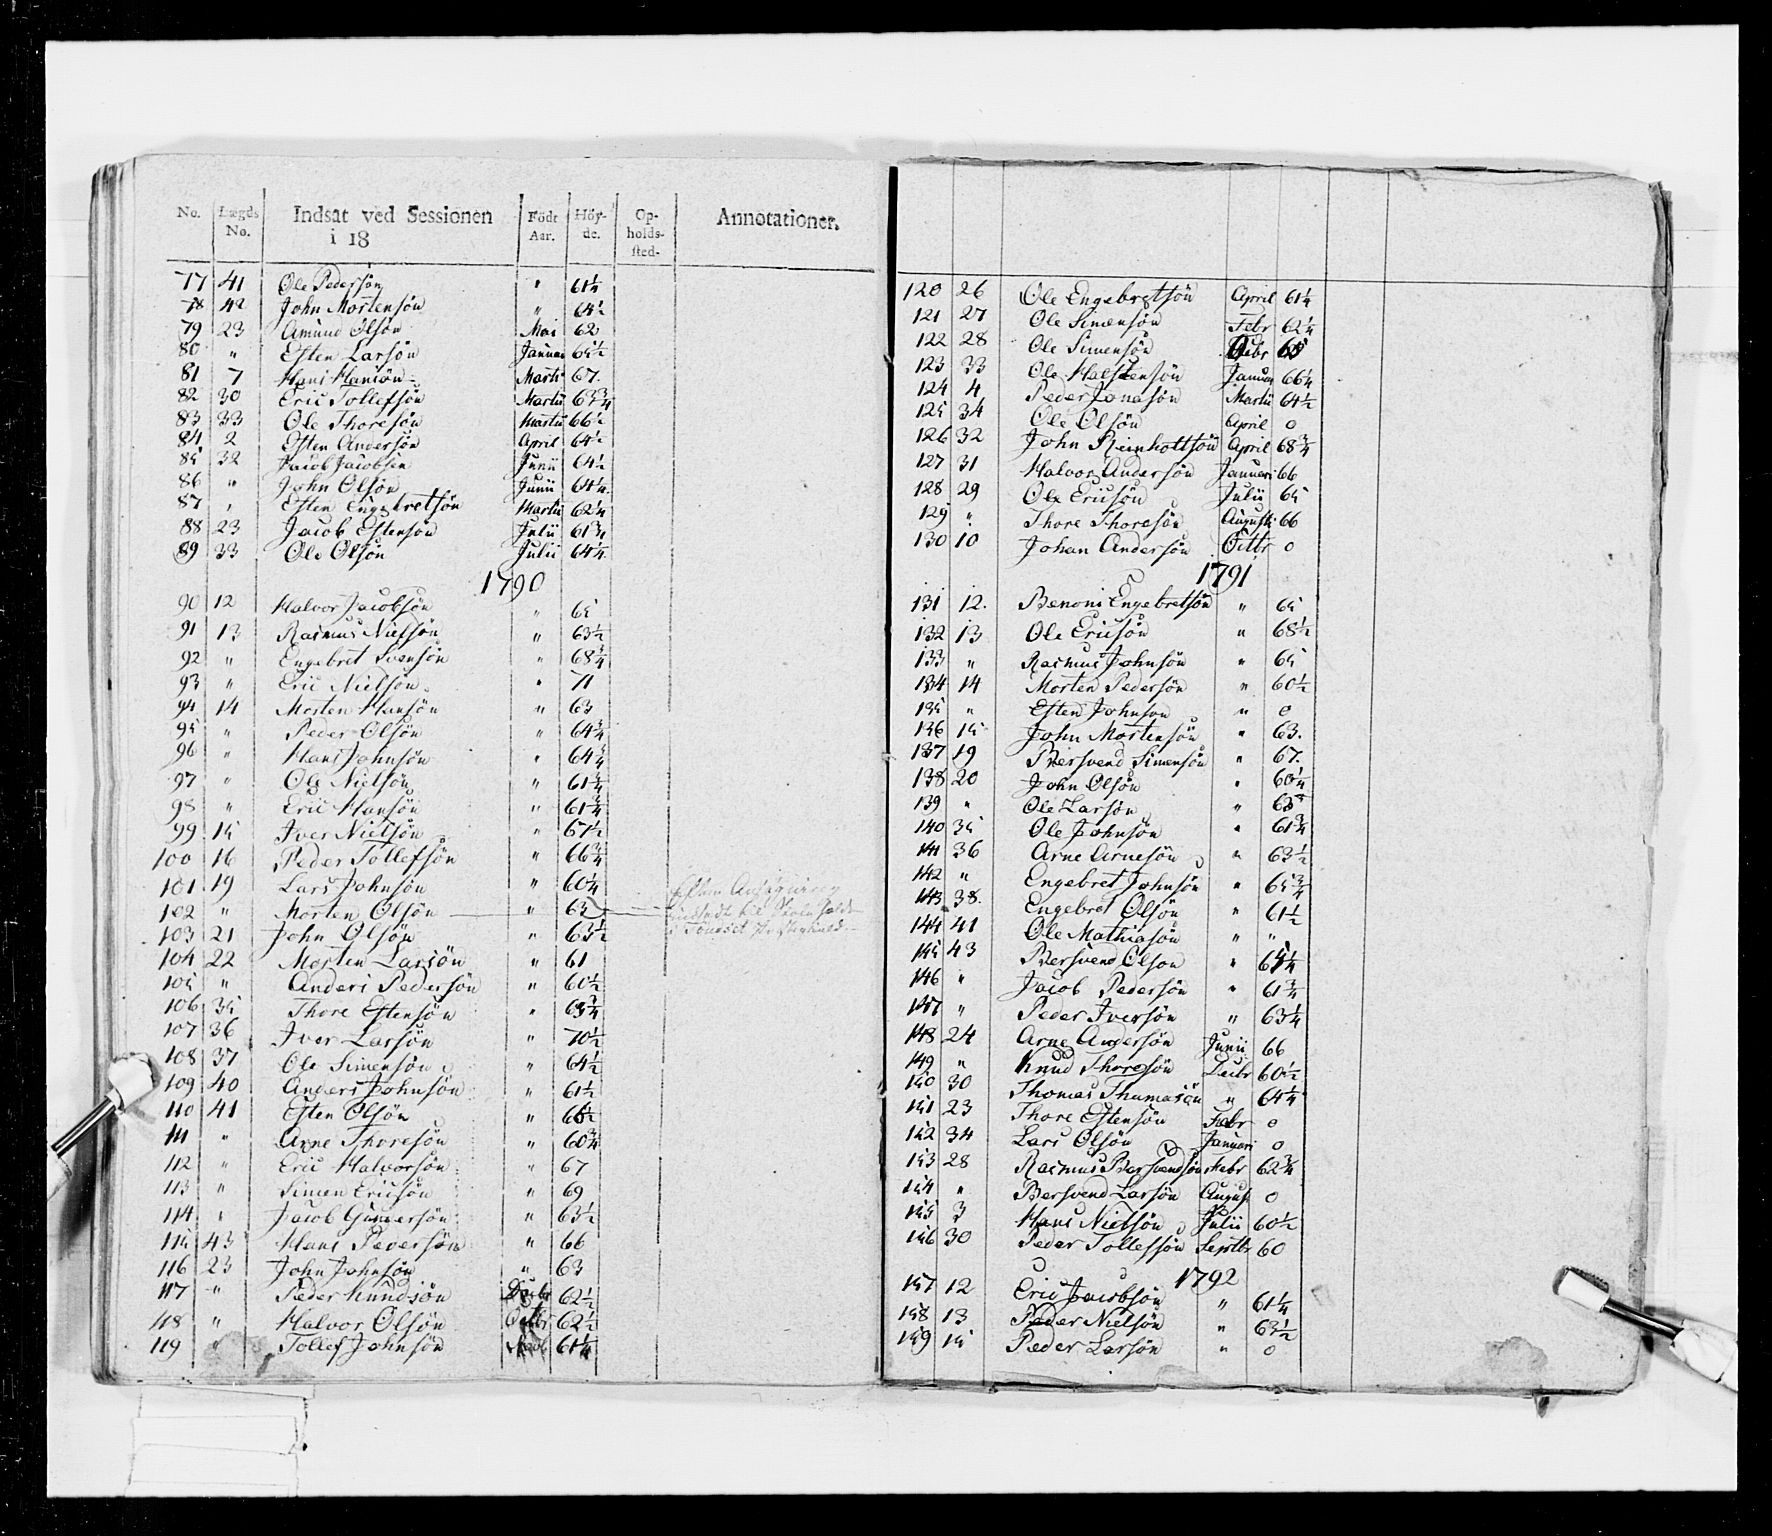 No. Lægds No. Indsat ved Sessionen i 18 Födt Aar. Höy-de. Op-holds-sted. Annotationer.
77 41 Ole Pedersön " 61¼
78 42 John Mortensön " 64½
79 23 Amund Olsön Mai 62
80 " Esten Larsön Januar 65½
81 7 Hans Hansön Marti 67.
82 30 Eric Tollefsön Martii 63¾
83 33 Ole Thoresön Martii 66½
84 2 Esten Andersön April 64½
85 32 Jacob Jacobsen Junii 64½
86 " John Olsön Junii 64¼
87 " Esten Engebretsön Martii 62¼
88 23 Jacob Estensön Julii 61¾
89 33 Ole Olsön Julii 64¼
1790
90 12 Halvor Jacobsön " 65
91 13 Rasmus Nielsön " 63½
92 " Engebret Svensön " 68¾
93 " Eric Nielsön " 71
94 14 Morten Hansön " 63
95 " Peder Olsön " 64¾
96 " Hans Johnsön " 64¾
97 " Ole Nielsön " 61¾
98 " Eric Hansön " 61¾
99 15 Iver Nielsön " 67½
100 16 Peder Tollefsön " 66¾
101 19 Lars Johnsön " 60¼
102 " Morten Olsön " 63
103 21 John Olsön " 63½
104 22 Morten Larsön " 61
105 " Anders Pedersön " 60½
106 35 Thore Estensön " 63¾
107 36 Iver Larsön " 70½
108 37 Ole Simensön " 64½
109 40 Anders Johnsön " 61½
110 41 Esten Olsön " 66½
111 " Arne Thoresön " 60¾
112 " Eric Halvorsön " 67
113 " Simen Ericsön " 69
114 " Jacob Gundersön " 63½
115 43 Hans Pedersön " 66
116 23 John Johnsön " 63
117 " Peder Knudsön Decbr 62½
118 " Halvor Olsön Octbr 62½
119 " Tollef Johnsön 61¼
120 26 Ole Engebretsön April 61¼
121 27 Ole Simensön Febr 62¼
122 28 Ole Simensön 65
123 33 Ole Halstensön Januar 66¼
124 4 Peder Jonasön Martii 64½
125 34 Ole Olsön April 0
126 32 John Reinholtsön April 68¾
127 31 Halvor Andersön Januari 66
128 29 Ole Ericsön Julii 65
129 " Thore Thoresön August 66
130 10 Johan Andersön Octbr 0
1791
131 12. Benoni Engebretsön " 65
132 13 Ole Ericsön " 68½
133 " Rasmus Johnsön " 65
134 14 Morten Pedersön " 60½
135 " Esten Johnson " 0
136 15 John Mortensön " 63.
137 19 Bersvend Simensön " 67.
138 20 John Olsön " 60¼
139 " Ole Larsön " 63
140 35 Ole Johnsön " 61¾
141 36 Arne Arnesön " 63½
142 " Engebret Johnsön " 65¾
143 38. Engebret Olsön " 61½
144 41 Ole Mathiasön " "
145 43 Bersvend Olson "
146 " Jacob Pedersön " 61¾
147 " Peder Iversön " 63¼
148 24 Arne Andersön Junii 66
149 " Knud Thoresön Decbr 60½
150 30 Thomas Thomasön " 64¼
151 23 Thore Estensön Febr 0
152 34 Lars Olsön Januari 0
153 28 Rasmus Bersvendsön Febr 62¾
154 " Bersvend Larsön August 0
155 3 Hans Nielsön Julii 60½
156 30 Peder Tollefsön Septbr 60
1792
157 12 Eric Jacobsön " 61¼
158 13 Peder Nielsön " 63½
159 15 Peder Larsön " 0